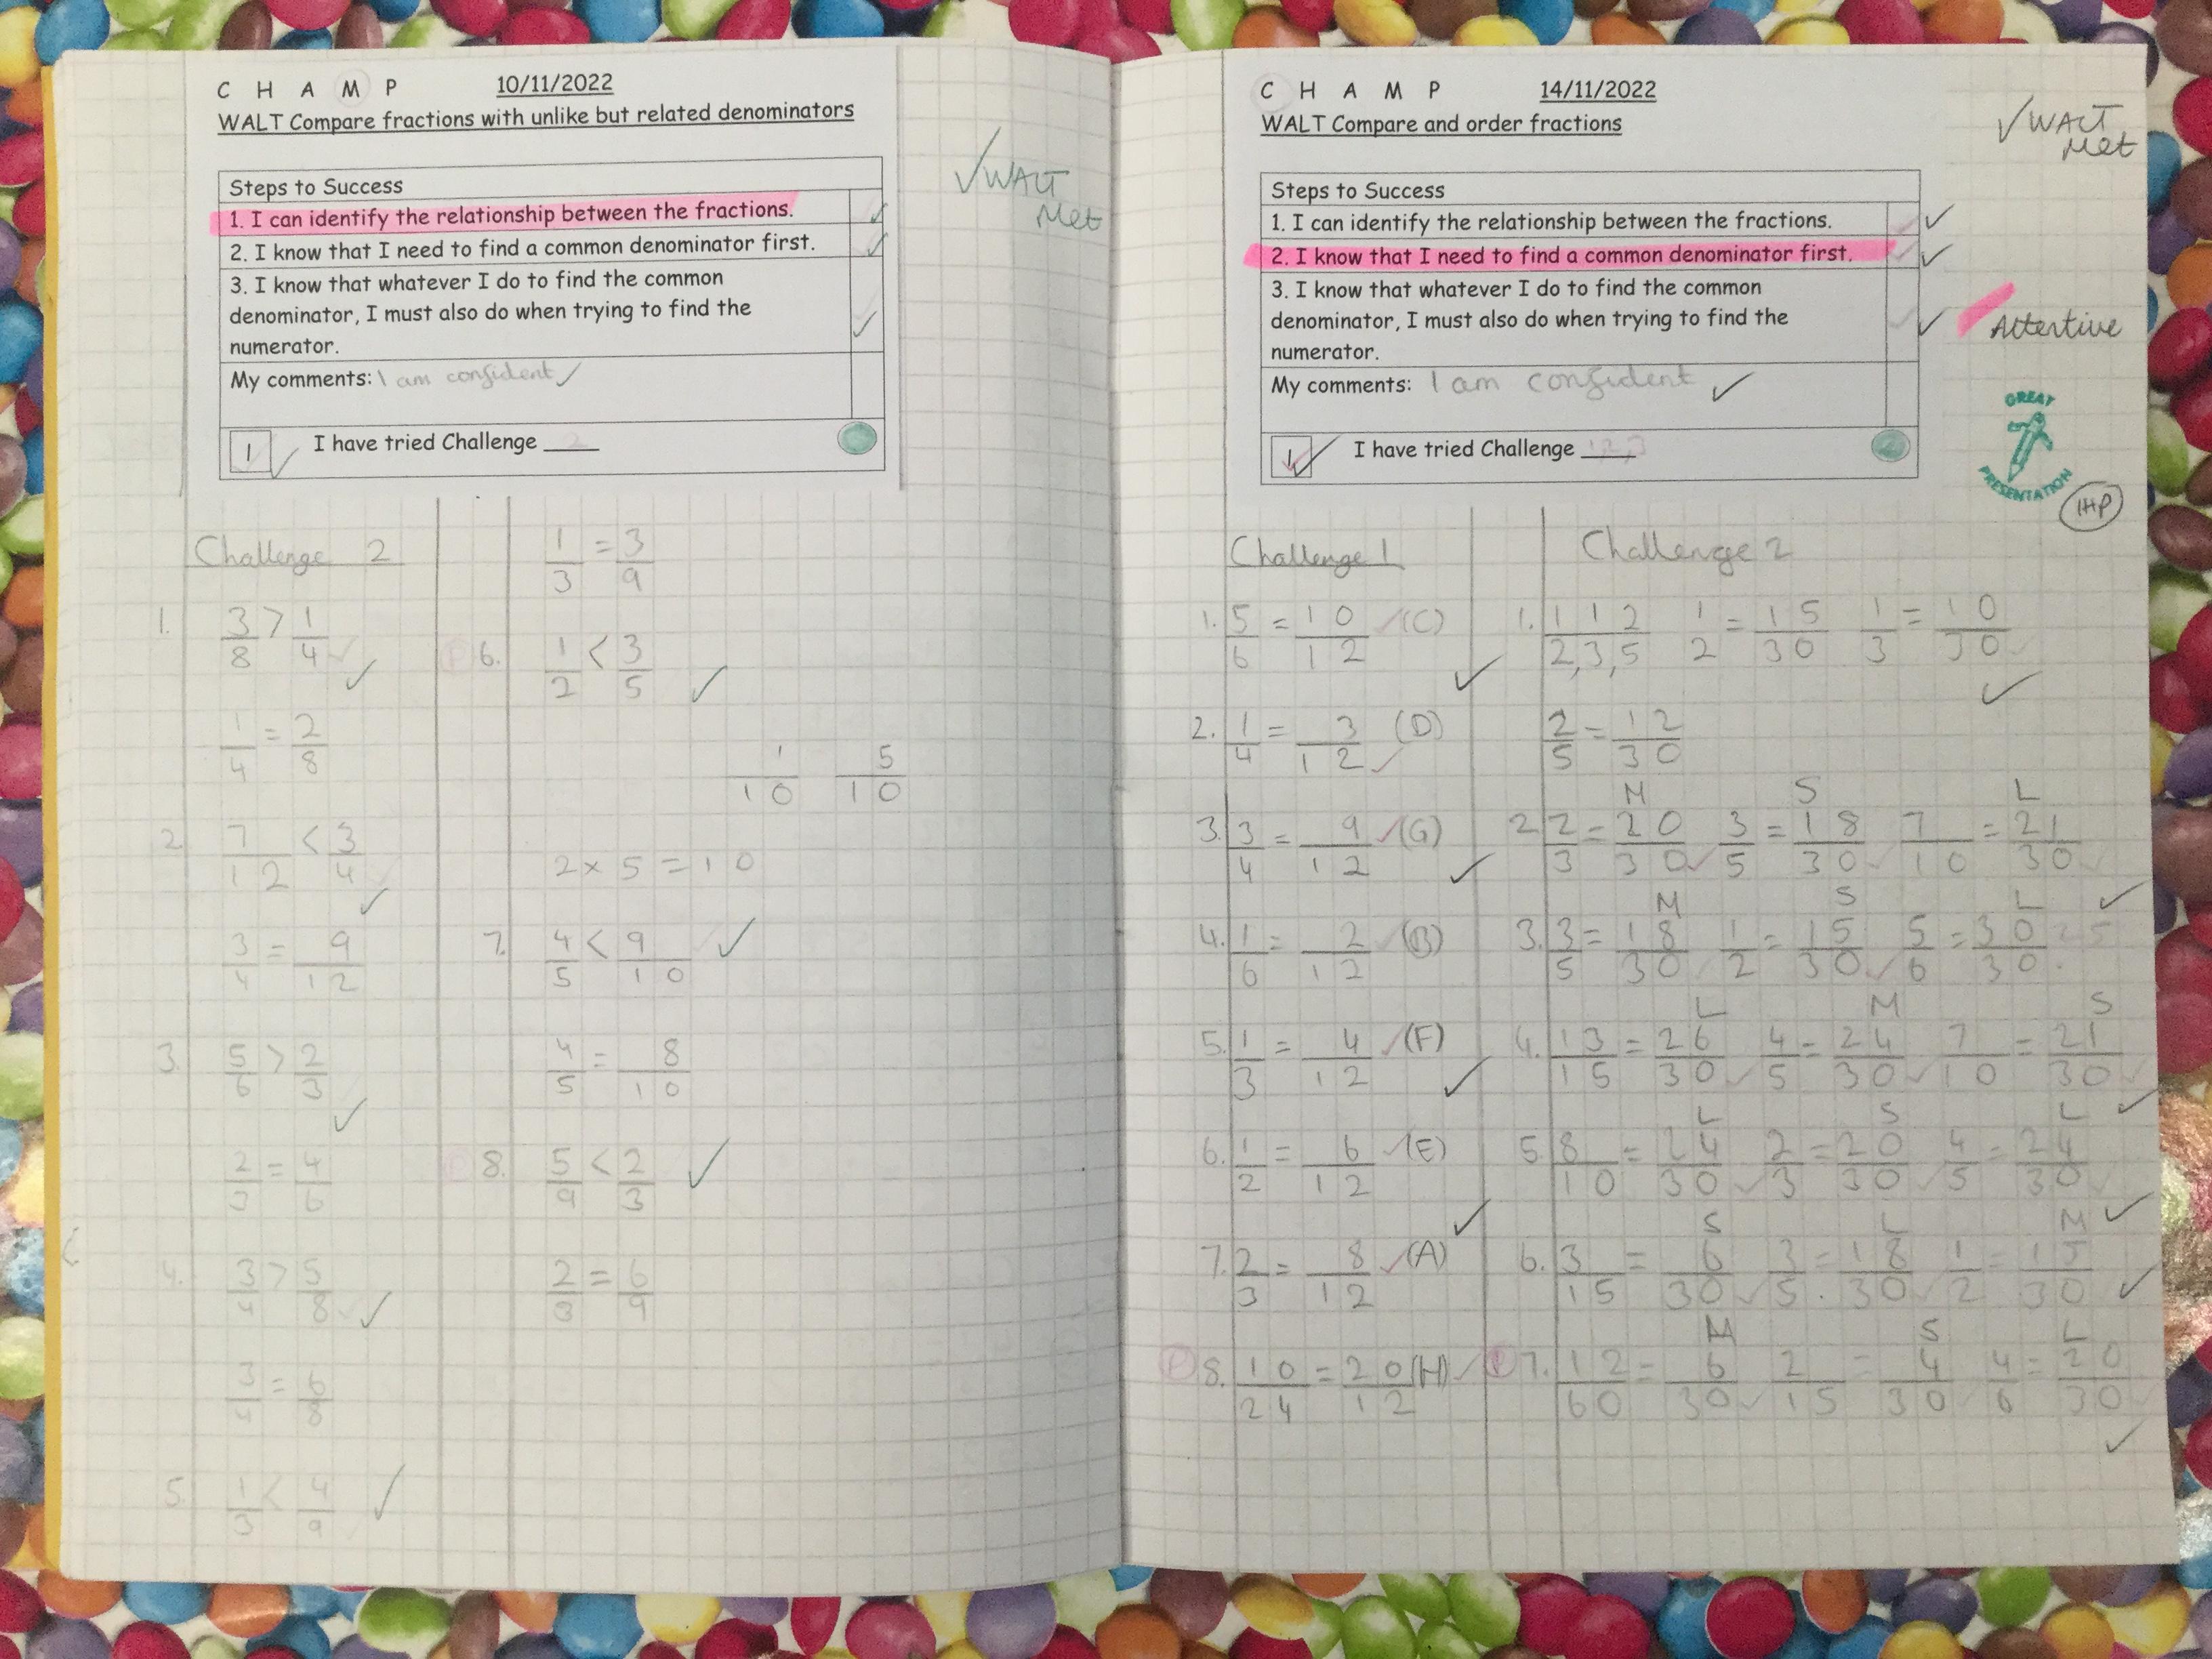 C H A M P 10/11/2022
WALT Compare fractions with unlike but related denominators
Steps to Success
1. I can identify the relationship between the fractions.
2. I know that I need to find a common denominator first.
3. I know that whatever I do to find the common
denominator, I must also do when trying to find the
numerator.
My comments: I am confident ✓
1 I have tried Challenge 2
✓ WALT
Met
Challenge 2
1. 3/8 > 1/4
1/4 = 2/8
2. 7/12 < 3/4
3/4 = 9/12
3. 5/6 > 2/3
2/3 = 4/6
4. 3/4 > 5/8
3/4 = 6/8
5. 1/3 < 4/9
1/3 = 3/9
6. 1/2 < 3/5
1/10 5/10
2 × 5 = 10
7. 4/5 < 9/10
4/5 = 8/10
8. 5/9 < 2/3
2/3 = 6/9
C H A M P 14/11/2022
WALT Compare and order fractions
✓ WALT
Met
Steps to Success
1. I can identify the relationship between the fractions.
2. I know that I need to find a common denominator first.
3. I know that whatever I do to find the common
denominator, I must also do when trying to find the
numerator.
My comments: I am confident ✓
1 I have tried Challenge 1,2,3
Attentive
GREAT
PRESENTATION
1HP
Challenge 1
1. 5/6 = 10/12 (C)
2. 1/4 = 3/12 (D)
3. 3/4 = 9/12 (G)
4. 1/6 = 2/12 (B)
5. 1/3 = 4/12 (F)
6. 1/2 = 6/12 (E)
7. 2/3 = 8/12 (A)
8. 10/24 = 20/12 (H)
Challenge 2
1. 1/2, 1/3, 2/5 1/2 = 15/30 1/3 = 10/30
2/5 = 12/30
M S L
2. 2/3 = 20/30 3/5 = 18/30 7/10 = 21/30
M S L
3. 3/5 = 18/30 1/2 = 15/30 5/6 = 30/30 25
L M S
4. 13/15 = 26/30 4/5 = 24/30 7/10 = 21/30
L S L
5. 8/10 = 24/30 2/3 = 20/30 4/5 = 24/30
S L M
6. 3/15 = 6/30 3/5 = 18/30 1/2 = 15/30
M S L
7. 12/60 = 6/30 2/15 = 4/30 4/6 = 20/30